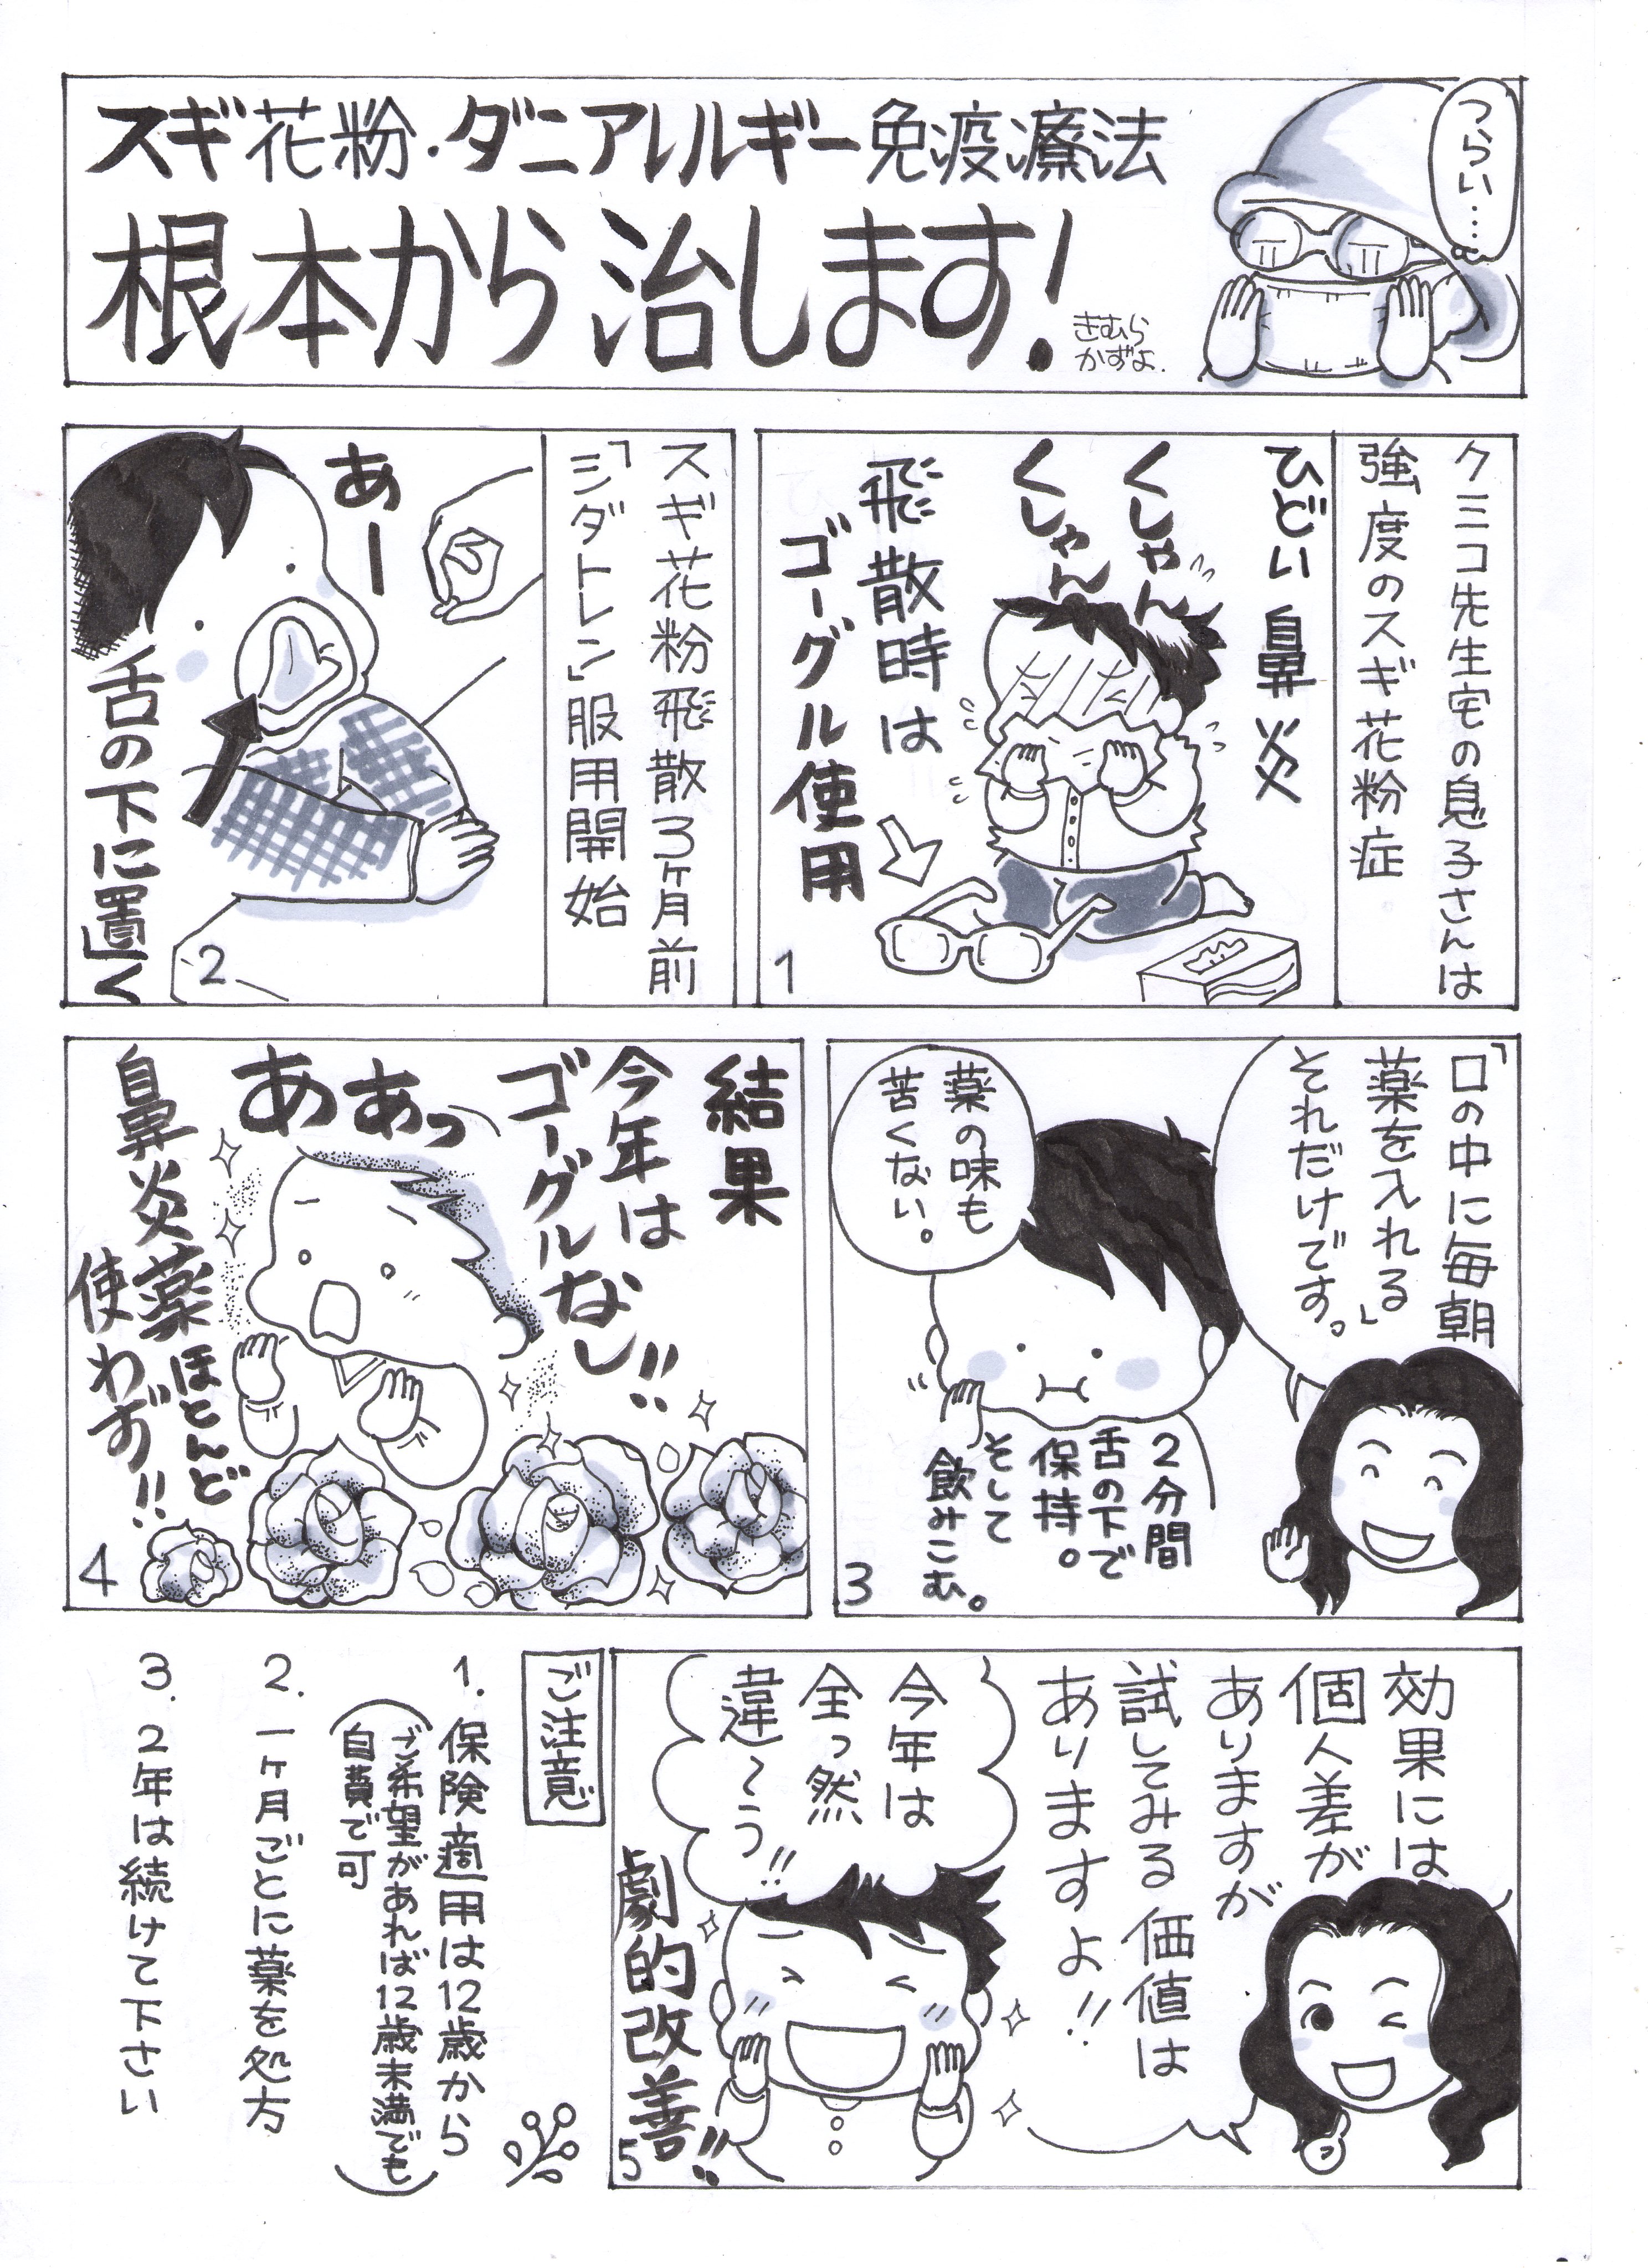 スギ花粉・ダニアレルギー免疫療法
根本から治します!
きむら
かずよ.
つらい……
クミコ先生宅の息子さんは
強度のスギ花粉症
ひどい鼻炎
くしゃん
くしゃん
飛散時は
ゴーグル使用
1
スギ花粉飛散3ヶ月前
「シダトレン」服用開始
あー
舌の下に置く
2
「口の中に毎朝
薬を入れる」
それだけです。
薬の味も
苦くない。
2分間
舌の下で
保持。
そして
飲みこむ。
3
結果
今年は
ゴーグルなし!!
ああっ
鼻炎薬ほとんど
使わず!!
4
効果には
個人差が
ありますが
試してみる価値は
ありますよ!!
今年は
全っ然
違〜う!!
劇的改善!!
5
ご注意
1. 保険適用は12歳から
(ご希望があれば12歳未満でも
自費で可)
2. 一ヶ月ごとに薬を処方
3. 2年は続けて下さい